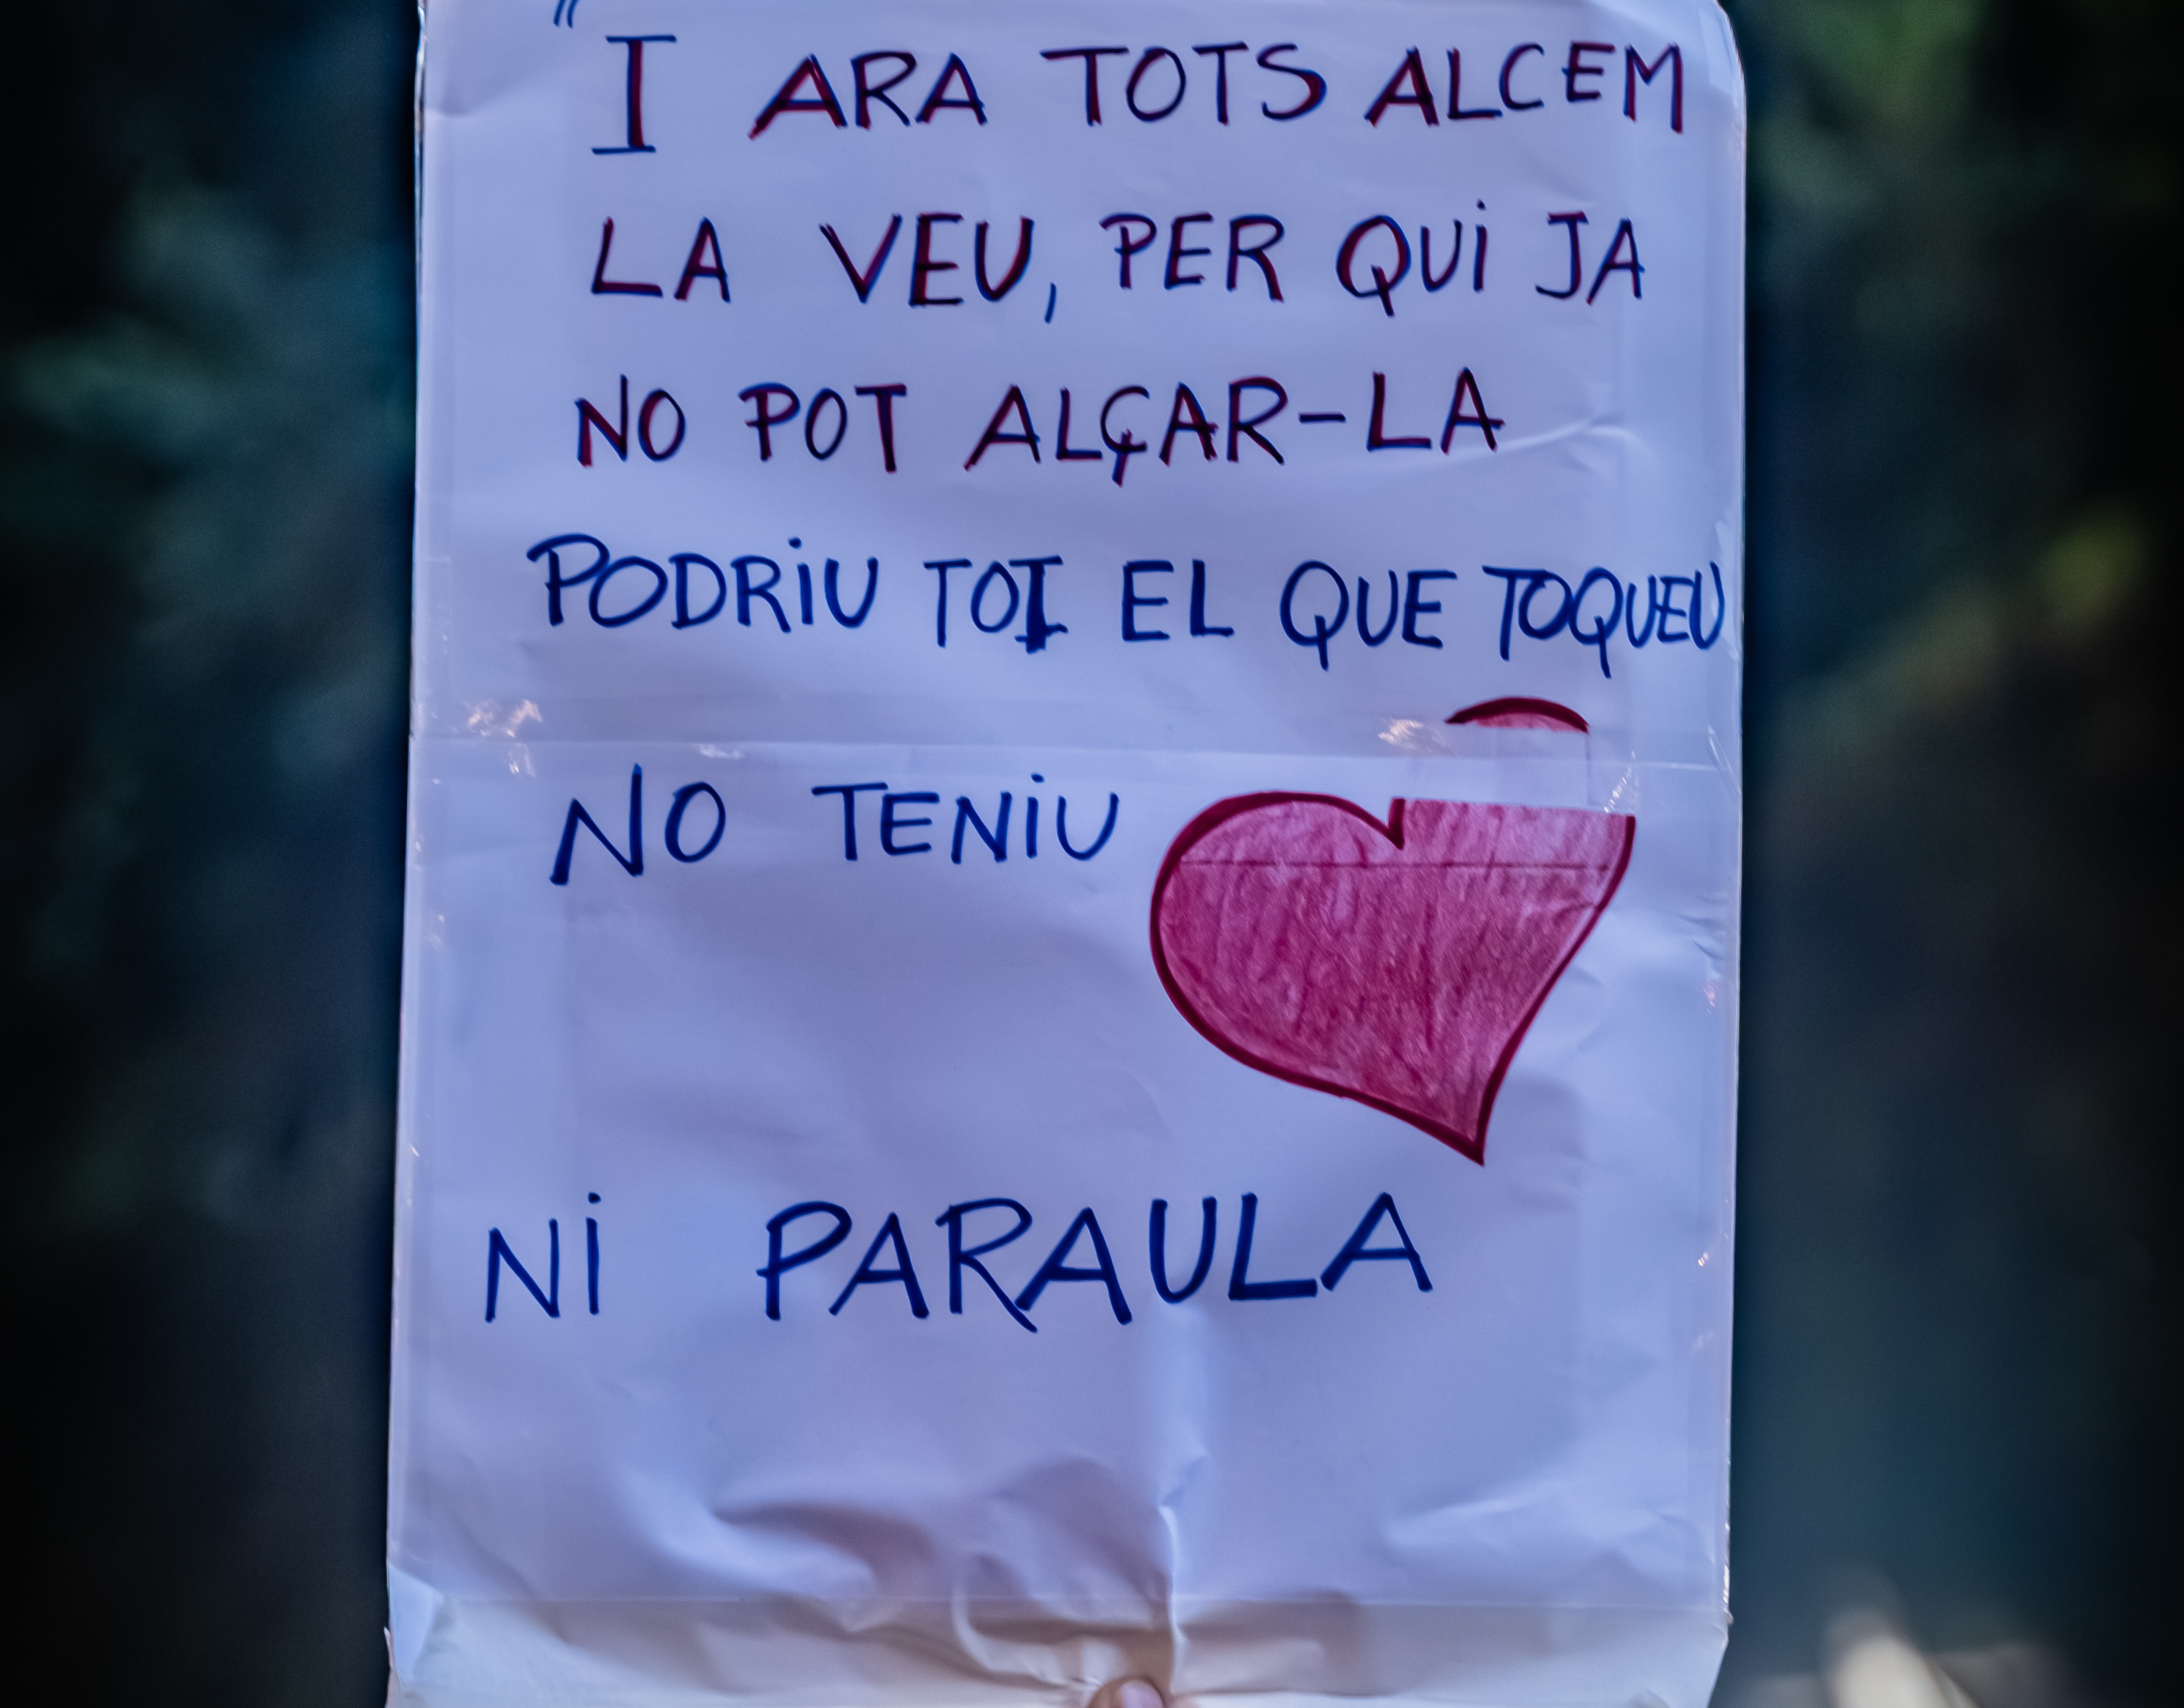 "I ARA TOTS ALCEM
LA VEU, PER QUI JA
NO POT ALÇAR-LA
PODRIU TOT EL QUE TOQUEU
NO TENIU
NI PARAULA